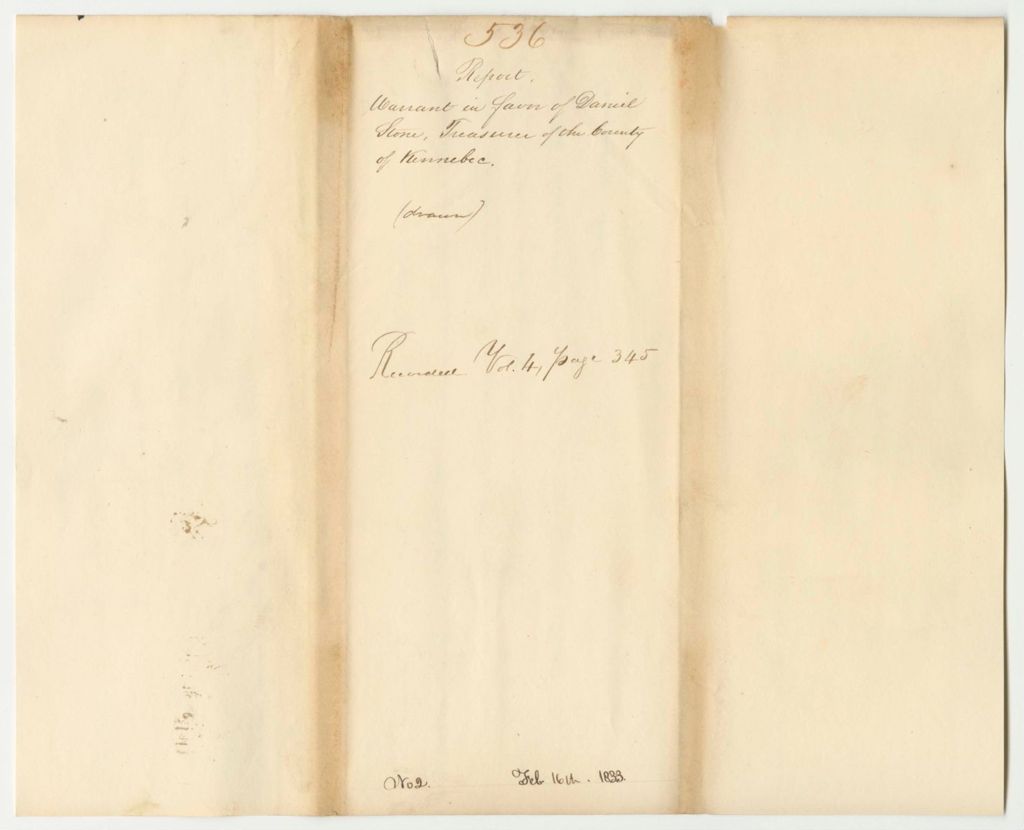 536
Report.
Warrant in favor of Daniel
Stone, Treasurer of the County
of Kennebec.
(drawn)
Recorded Vol. 4, page 345
No 2. Feb 16th. 1833.